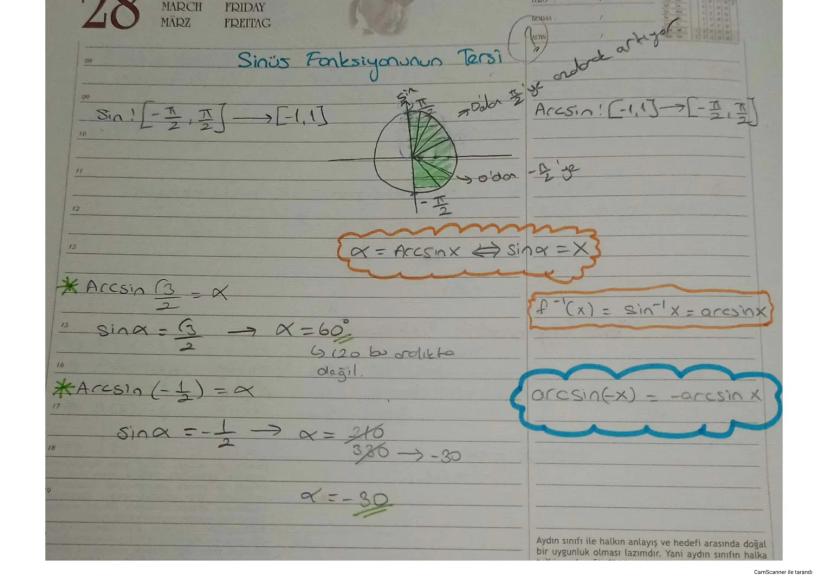 28 MARCH FRIDAY
MÄRZ FREITAG
Sinüs Fonksiyonunun Tersi
09
Sin: [-π/2, π/2] → [-1,1]
sin
π/2
⇒ 0'dan π/2'ye olarak artıyor
Arcsin: [-1,1] → [-π/2, π/2]
10
11
→ 0'dan -π/2'ye
-π/2
12
13
α = Arcsinx ⇔ sinα = x
* Arcsin √3/2 = α
f⁻¹(x) = sin⁻¹x = arcsinx
15
sinα = √3/2 → α = 60°
↳ 120 bu aralıkta
değil.
16
* Arcsin(-1/2) = α
arcsin(-x) = -arcsin x
17
sinα = -1/2 → α = 210
18
330 → -30
α = -30
Aydın sınıfı ile halkın anlayış ve hedefi arasında doğal
bir uygunluk olması lazımdır. Yani aydın sınıfın halka
CamScanner ile tarandı